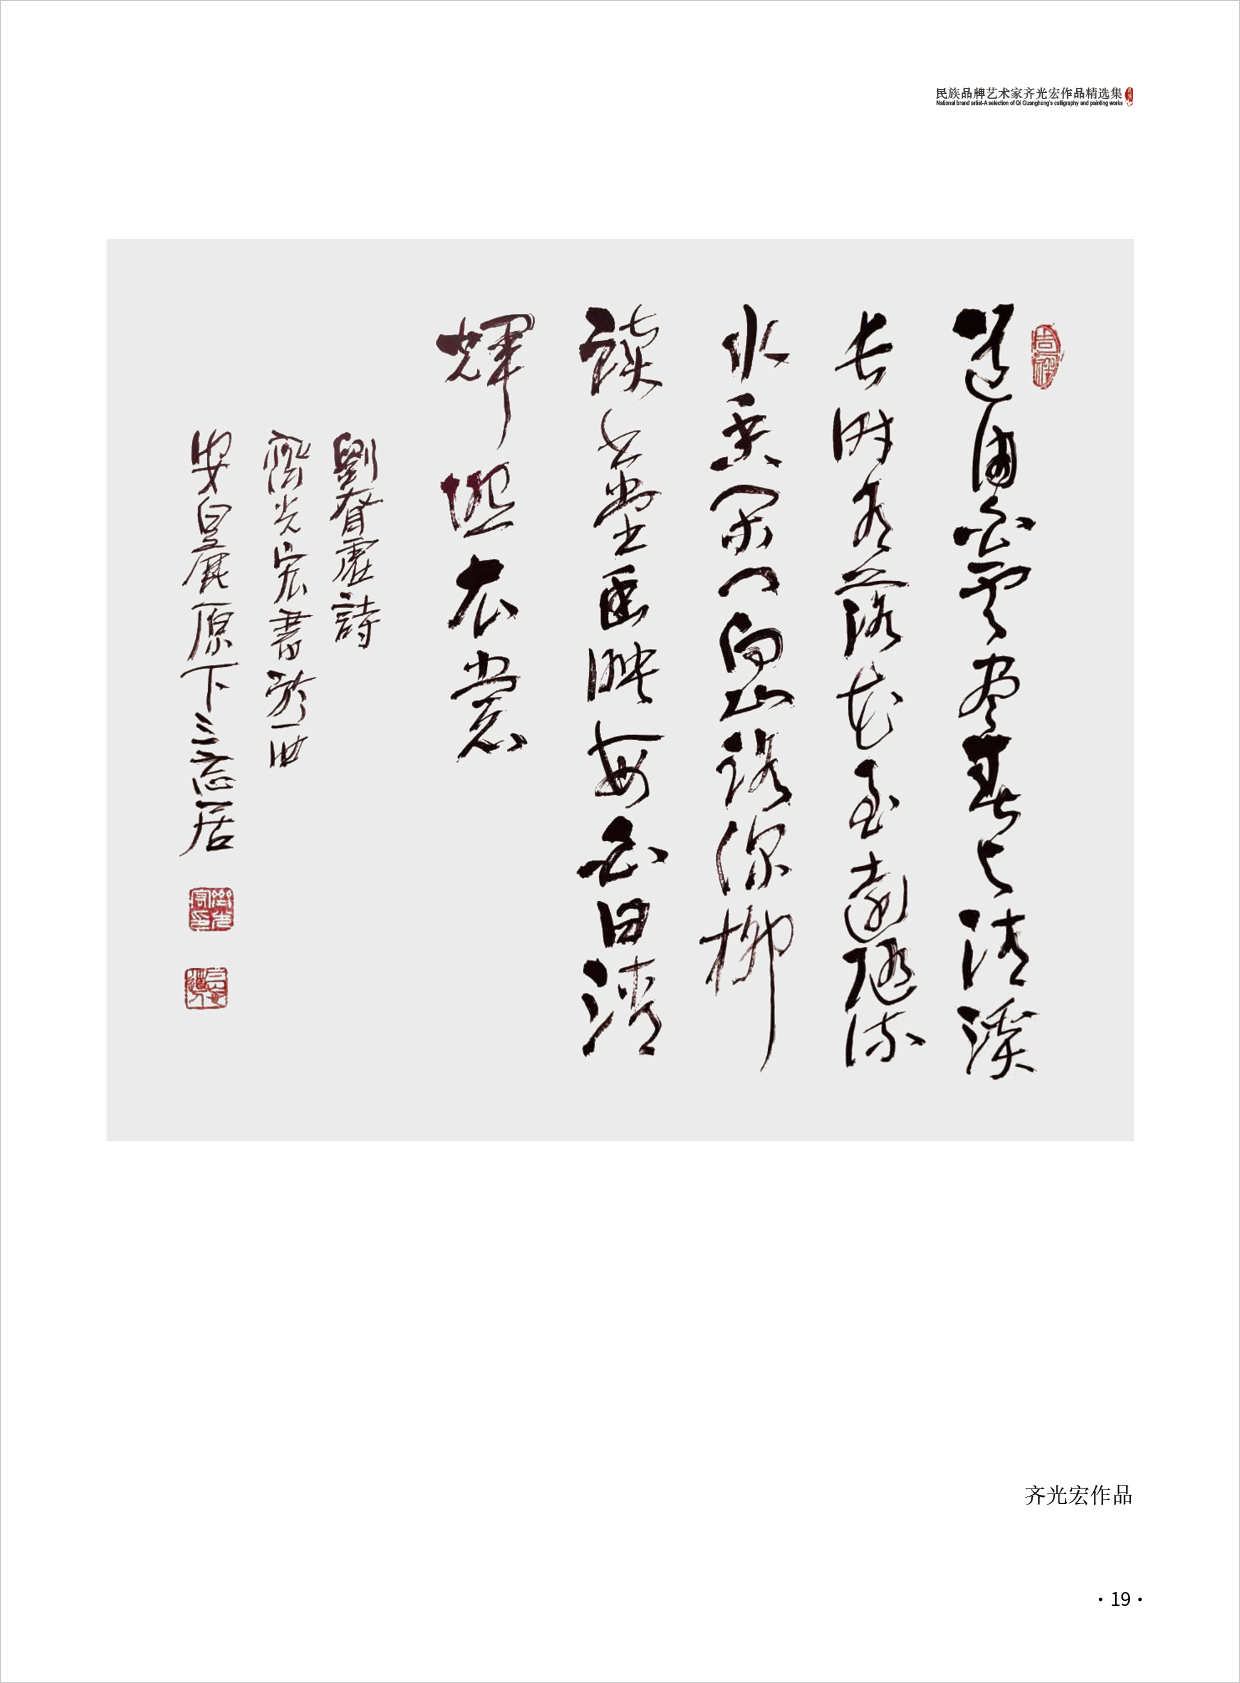 民族品牌艺术家齐光宏作品精选集
National brand artist-A selection of Qi Guanghong's calligraphy and painting works
道由白云尽春与清溪
长时有落花至远随流
水香闲门向山路深柳
读书堂幽映每白日清
輝照衣裳
劉昚虛詩
齊光宏書於西
安白鹿原下三忘居
吉祥
齐光宏作品
·19·